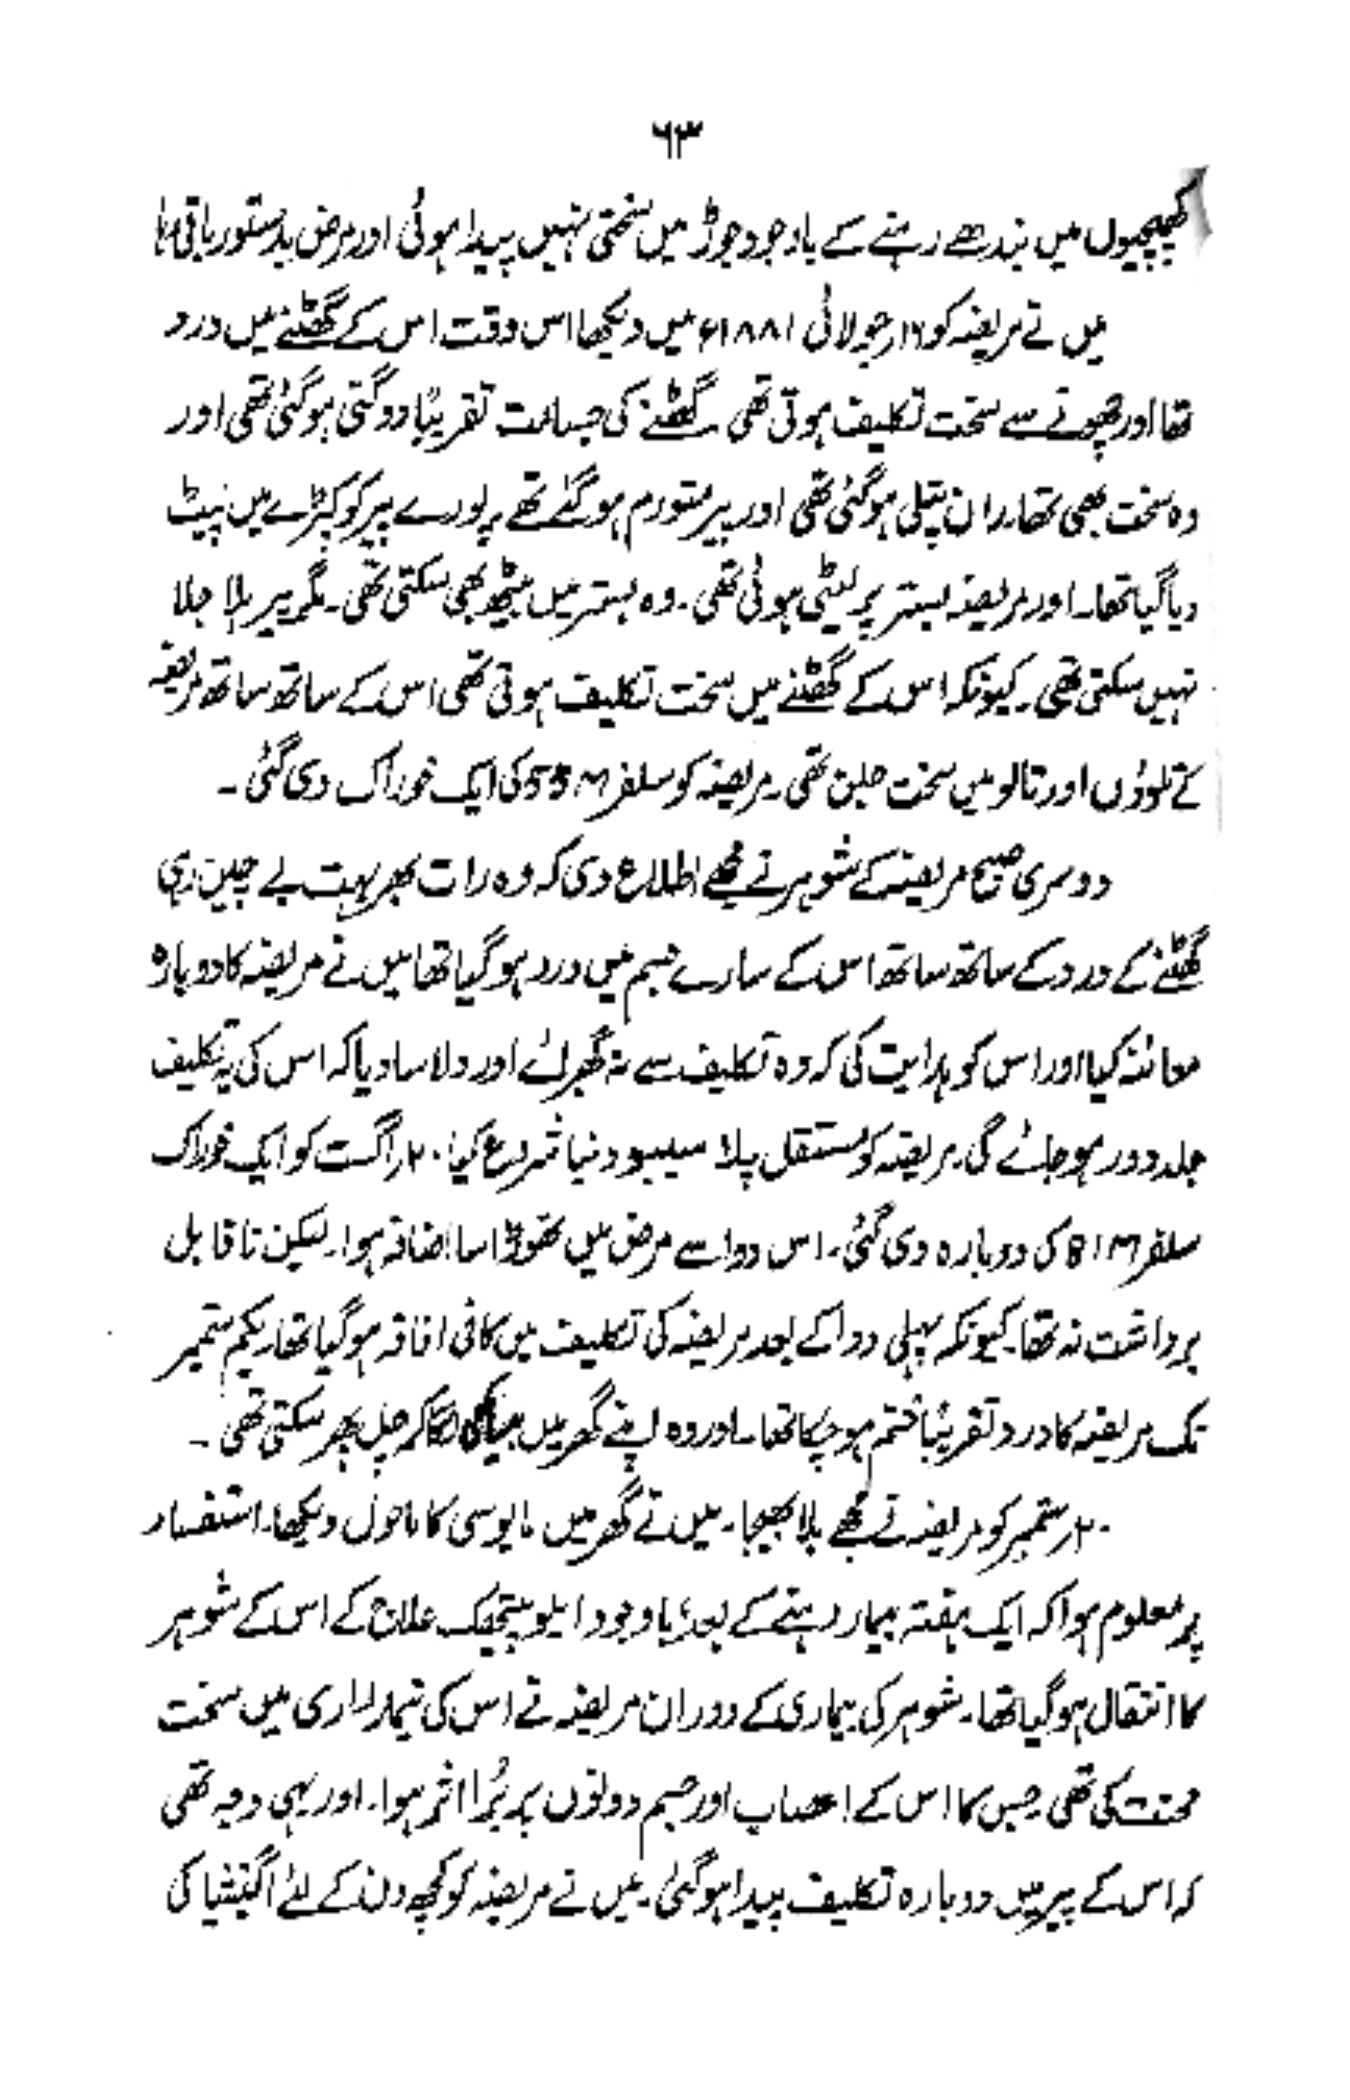 ۶۳
کھپچیوں میں بندھے رہنے کے باوجود جوڑ میں سختی نہیں پیدا ہوئی اور مرض بدستور باقی رہا
میں نے مریضہ کو ۱۶ر جولائی ۱۸۸۱ء میں دیکھا اس وقت اس کے گھٹنے میں درد
تھا اور چھونے سے سخت تکلیف ہوتی تھی۔ گھٹنے کی جسامت تقریبًا دوگنی ہوگئی تھی اور
وہ سخت بھی تھا۔ ران پتلی ہوگئی تھی اور پیر متورم ہوگئے تھے۔ پورے پیر کو کپڑے میں لپیٹ
دیا گیا تھا۔ اور مریضہ بستر پر لیٹی ہوئی تھی۔ وہ بستر میں بیٹھ بھی سکتی تھی۔ مگر پیر ہلا جلا
نہیں سکتی تھی۔ کیونکہ اس کے گھٹنے میں سخت تکلیف ہوتی تھی اس کے ساتھ ساتھ مریضہ
کے تلوؤں اور تالو میں سخت جلن تھی۔ مریضہ کو سلفر 55M کی ایک خوراک دی گئی۔
دوسری صبح مریضہ کے شوہر نے مجھے اطلاع دی کہ وہ رات بھر بہت بے چین رہی
گھٹنے کے درد کے ساتھ ساتھ اس کے سارے جسم میں درد ہوگیا تھا میں نے مریضہ کا دوبارہ
معائنہ کیا اور اس کو ہدایت کی کہ وہ تکلیف سے نہ گھبرائے اور دلاسا دیا کہ اس کی یہ تکلیف
جلد دور ہوجائے گی۔ مریضہ کو مستقل پلاسیبو دینا شروع کیا۔ ۲۰ر اگست کو ایک خوراک
سلفر 81M کی دوبارہ دی گئی۔ اس دوا سے مرض میں تھوڑا سا اضافہ ہوا۔ لیکن ناقابل
برداشت نہ تھا۔ کیونکہ پہلی دوا کے بعد مریضہ کی تکلیف میں کافی افاقہ ہوگیا تھا۔ یکم ستمبر
تک مریضہ کا درد تقریبًا ختم ہوچکا تھا۔ اور وہ اپنے گھر میں بیساکھی لگا کر چل پھر سکتی تھی۔
۲۰ر ستمبر کو مریضہ نے مجھے بلا بھیجا۔ میں نے گھر میں مایوسی کا ماحول دیکھا۔ استفسار
پر معلوم ہوا کہ ایک ہفتہ بیمار رہنے کے بعد باوجود ایلوپیتھک علاج کے اس کے شوہر
کا انتقال ہوگیا تھا۔ شوہر کی بیماری کے دوران مریضہ نے اس کی تیمارداری میں سخت
محنت کی تھی جس کا اس کے اعصاب اور جسم دونوں پر بُرا اثر ہوا۔ اور یہی وجہ تھی
کہ اس کے پیر میں دوبارہ تکلیف پیدا ہوگئی۔ میں نے مریضہ کو کچھ دن کے لئے اگنیشیا کی